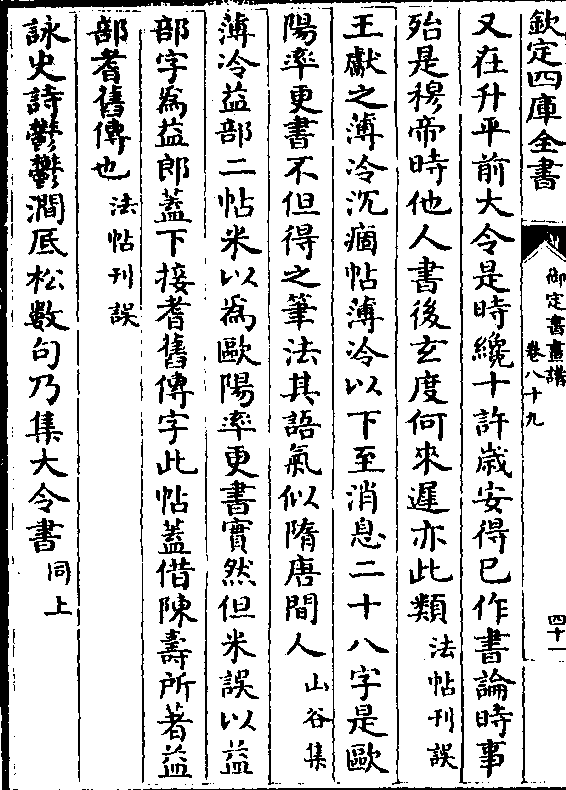 欽定四庫全書
御定書畫譜
卷八十九
四十一
又在升平前大令是時纔十許歲安得已作書論時事
殆是穆帝時他人書後玄度何來遲亦此類法帖刊誤
王獻之薄冷沉痼帖薄冷以下至消息二十八字是歐
陽率更書不但得之筆法其語氣似隋唐間人山谷集
薄冷益部二帖米以為歐陽率更書實然但米誤以益
部字為益郎蓋下接耆舊傳字此帖蓋借陳壽所著益
部耆舊傳也法帖刊誤
詠史詩鬱鬱澗底松數句乃集大令書同上